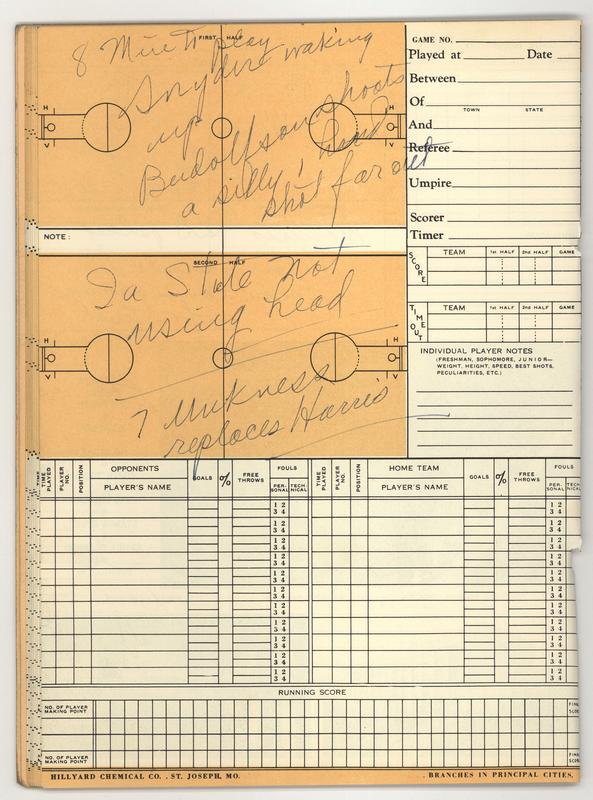 FIRST HALF
8 Min to play
Snyder waking
up
Budolfson shoots
a silly, hard
shot far out
H
V
H
V
NOTE:
SECOND HALF
Ia State not
using head
7 Minknes
replaces Harris
H
V
H
V
GAME NO.
Played at Date
Between
Of
TOWN STATE
And
Referee
Umpire
Scorer
Timer
SCORE
TEAM 1st HALF 2nd HALF GAME
TIME OUT
TEAM 1st HALF 2nd HALF GAME
INDIVIDUAL PLAYER NOTES
(FRESHMAN, SOPHOMORE, JUNIOR—
WEIGHT, HEIGHT, SPEED, BEST SHOTS,
PECULIARITIES, ETC.)
TIME PLAYED PLAYER NO. POSITION OPPONENTS PLAYER'S NAME GOALS % FREE THROWS FOULS PERSONAL TECHNICAL
TIME PLAYED PLAYER NO. POSITION HOME TEAM PLAYER'S NAME GOALS % FREE THROWS FOULS PERSONAL TECHNICAL
1 2 1 2
3 4 3 4
1 2 1 2
3 4 3 4
1 2 1 2
3 4 3 4
1 2 1 2
3 4 3 4
1 2 1 2
3 4 3 4
1 2 1 2
3 4 3 4
1 2 1 2
3 4 3 4
1 2 1 2
3 4 3 4
1 2 1 2
3 4 3 4
1 2 1 2
3 4 3 4
1 2 1 2
3 4 3 4
RUNNING SCORE
NO. OF PLAYER
MAKING POINT
NO. OF PLAYER
MAKING POINT
HILLYARD CHEMICAL CO. . ST. JOSEPH, MO. . BRANCHES IN PRINCIPAL CITIES.